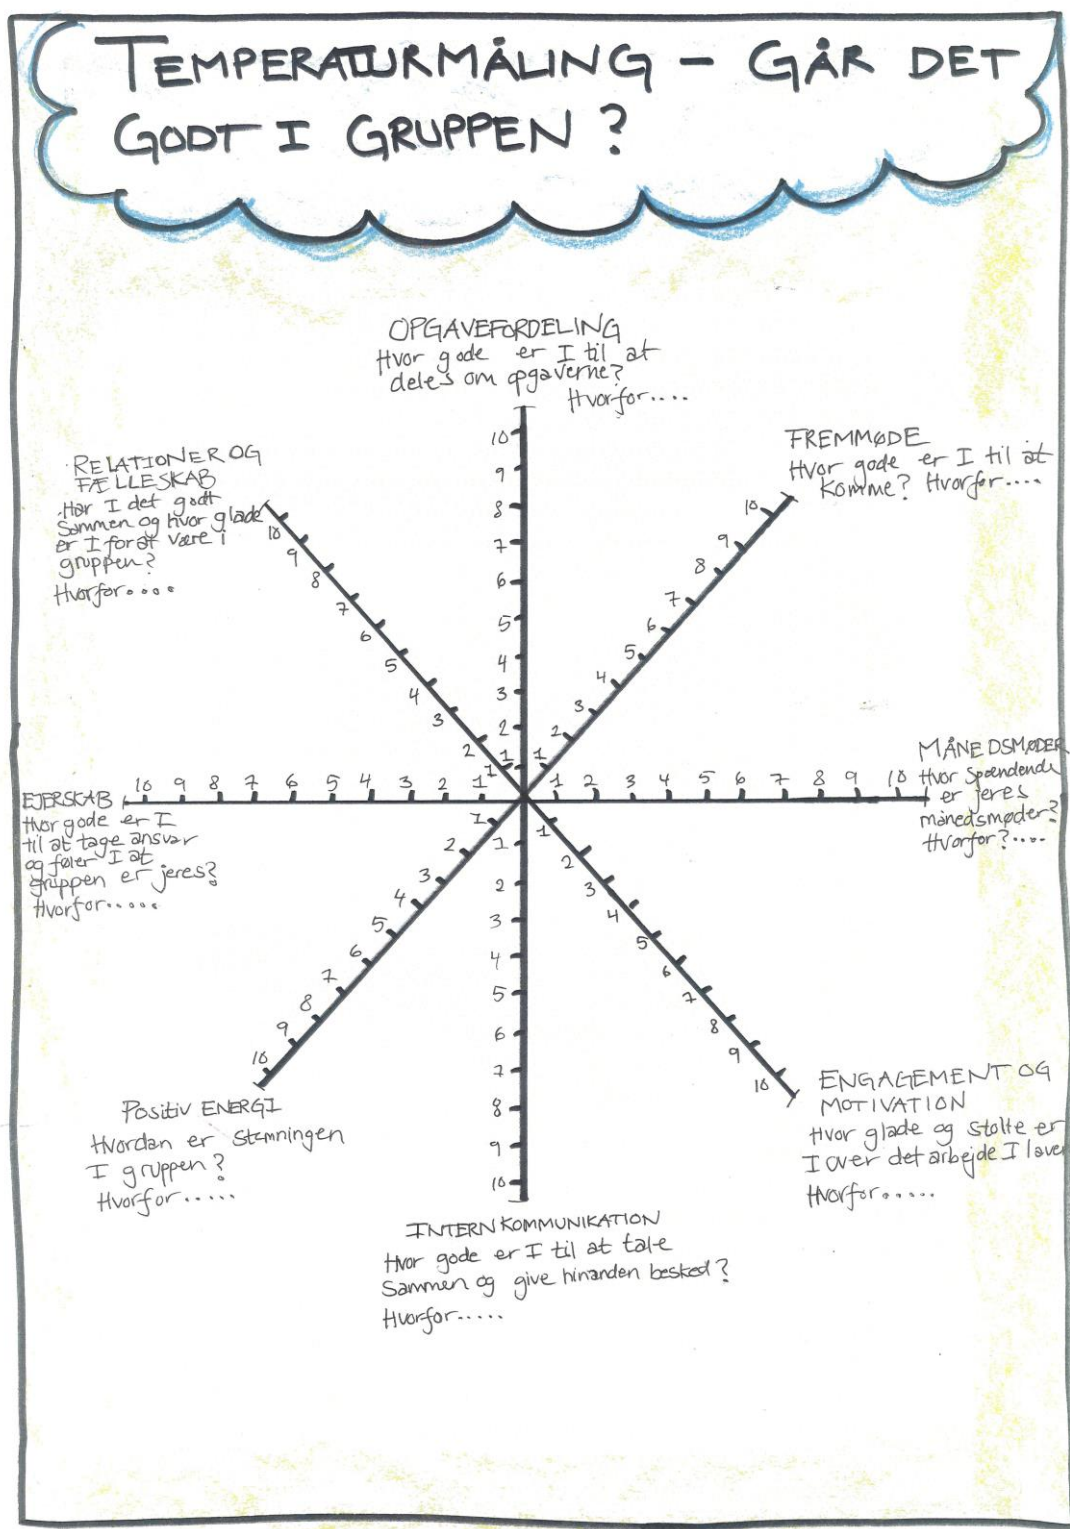 TEMPERATURMÅLING - GÅR DET
GODT I GRUPPEN?
OPGAVEFORDELING
Hvor gode er I til at
deles om opgaverne?
Hvorfor....
10
9
8
7
6
5
4
3
2
1
FREMMØDE
Hvor gode er I til at
komme? Hvorfor....
10
9
8
7
6
5
4
3
2
1
MÅNEDSMØDER
Hvor spændende
er jeres
månedsmøder?
Hvorfor?....
1 2 3 4 5 6 7 8 9 10
ENGAGEMENT OG
MOTIVATION
Hvor glade og stolte er
I over det arbejde I laver
Hvorfor.....
1
2
3
4
5
6
7
8
9
10
INTERN KOMMUNIKATION
Hvor gode er I til at tale
sammen og give hinanden besked?
Hvorfor.....
1
2
3
4
5
6
7
8
9
10
Positiv ENERGI
Hvordan er stemningen
I gruppen?
Hvorfor.....
1
2
3
4
5
6
7
8
9
10
EJERSKAB
Hvor gode er I
til at tage ansvar
og føler I at
gruppen er jeres?
Hvorfor.....
10 9 8 7 6 5 4 3 2 1
RELATIONER OG
FÆLLESKAB
Har I det godt
sammen og hvor glade
er I for at være i
gruppen?
Hvorfor....
10
9
8
7
6
5
4
3
2
1
1